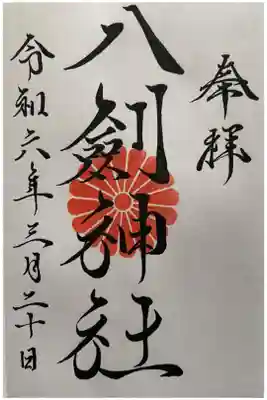 奉拝
八劔神社
令和六年三月二十日